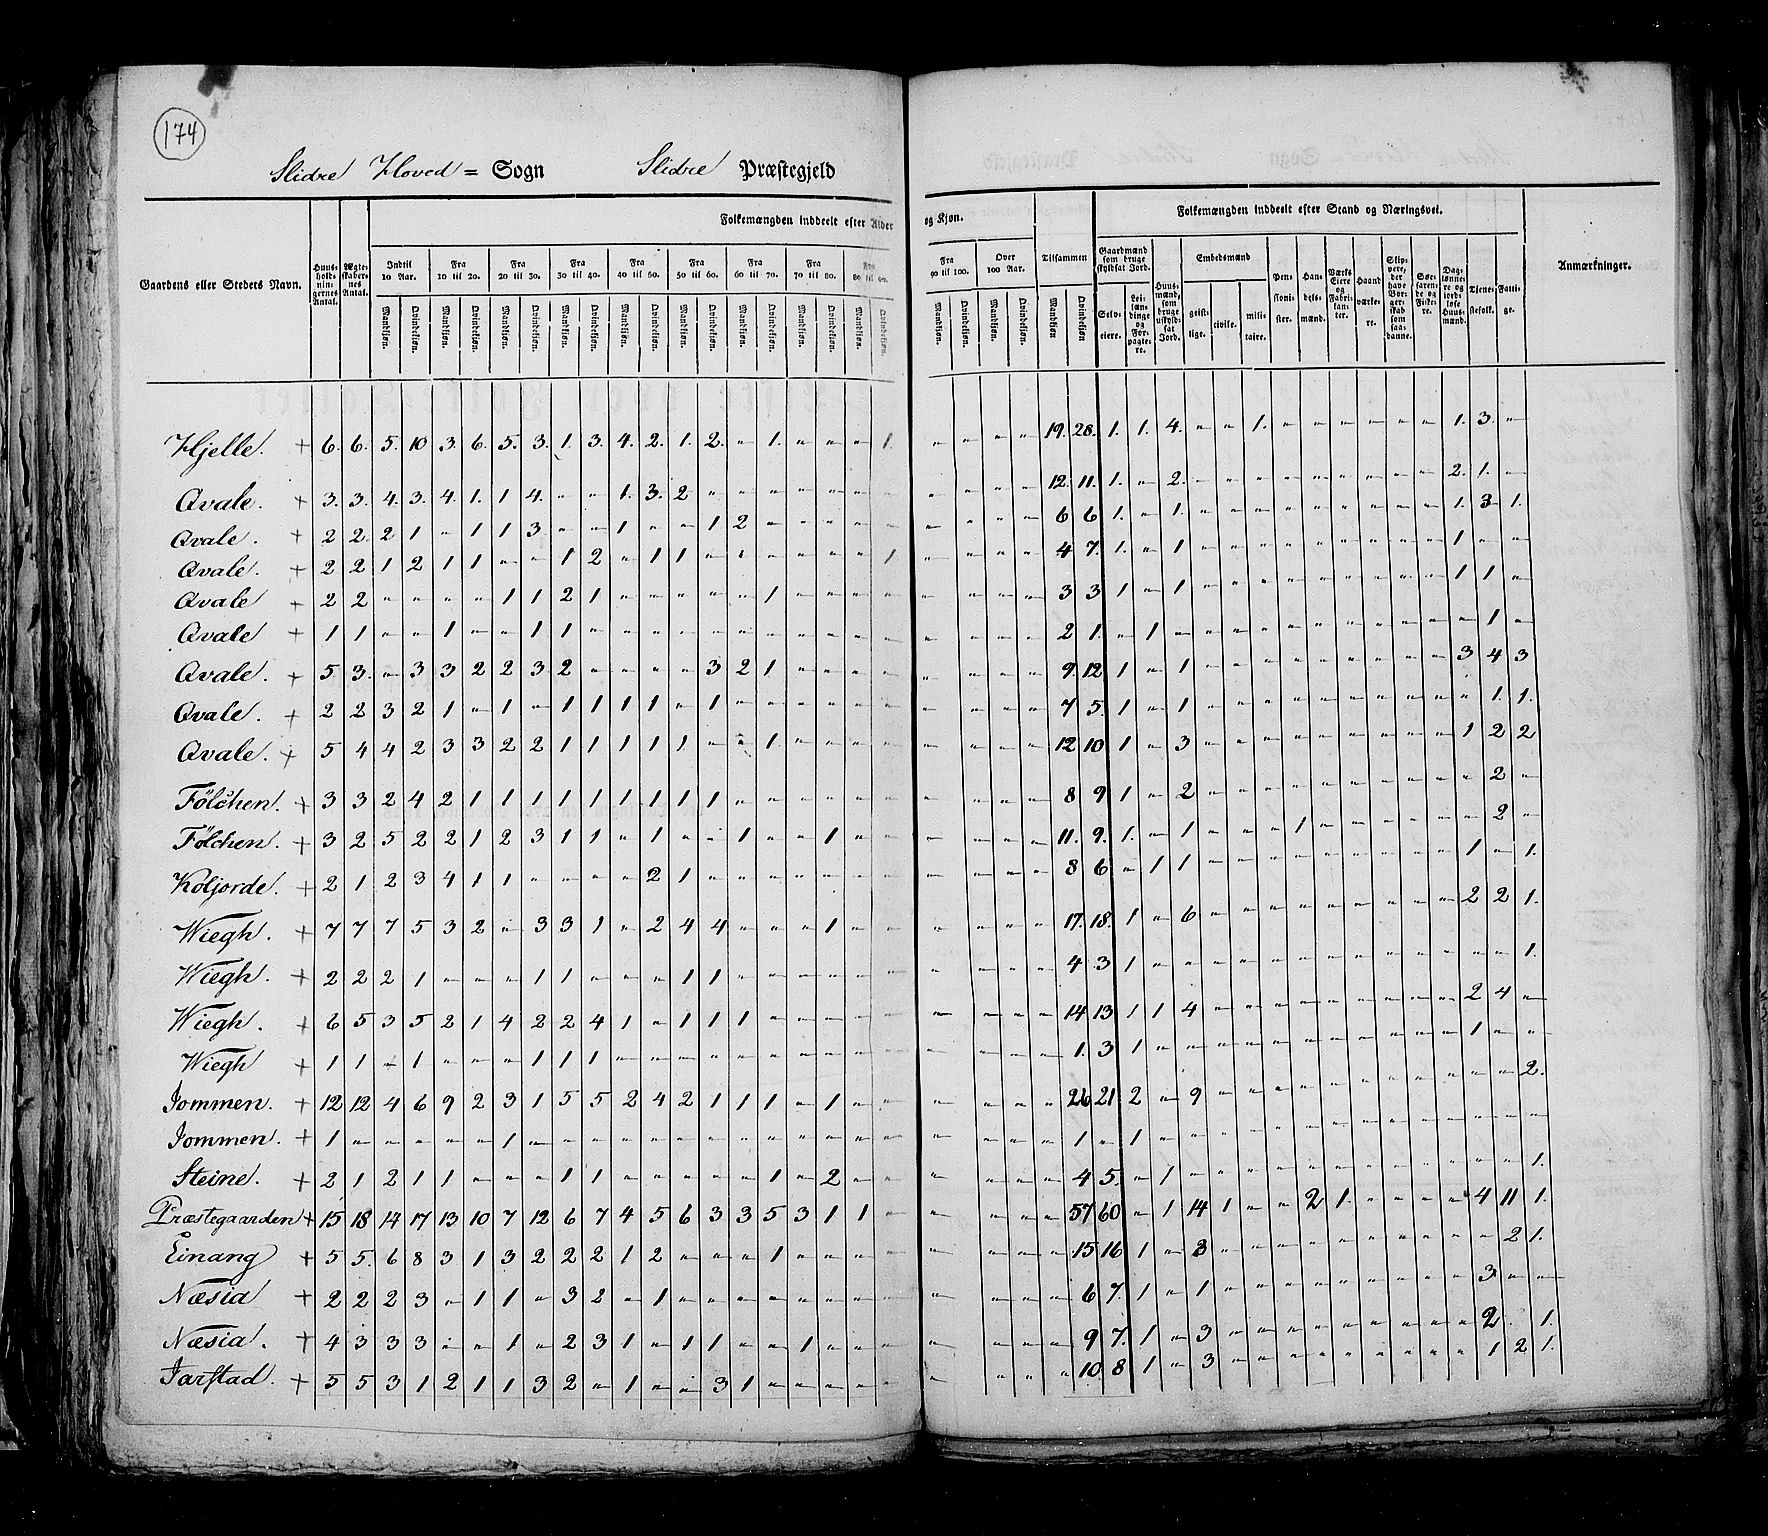 174
Slidre Hoved= Sogn Slidre Præstegjeld
Gaardens eller Steders Navn.
Huus-holdnin-gernes Antal.
Ægte-skaber-nes Antal.
Folkemængden inddeelt efter Alder og Kjøn.
Indtil 10 Aar.
Fra 10 til 20.
Fra 20 til 30.
Fra 30 til 40.
Fra 40 til 50.
Fra 50 til 60.
Fra 60 til 70.
Fra 70 til 80.
Fra 80 til 90.
Fra 90 til 100.
Over 100 Aar.
Tilsammen
Mandkjøn. Qvindekjøn.
Folkemængden inddeelt efter Stand og Næringsvei.
Gaardmænd som bruge skyldsat Jord.
Selv-eiere.
Lei-lændinge og For-pagte-re.
Huus-mænd, som bruge uskyld-sat Jord.
Embedsmænd
geist-lige.
civile.
mili-taire.
Pen-sioni-ster.
Han-dels-mænd.
Værks Eiere og Fabri-kan-ter
Haand værke-re.
Skip-pere, der have Bor-ger-skab som saa-danne.
Søe-farende og Fiske-re.
Dag-lønne-re og jordløse Huus-mænd.
Tjene-stefolk.
Fatti-ge.
Anmærkninger.
Hjelle. + 6. 6. 5. 10 3. 6. 5. 3. 1. 3. 4. 2. 1. 2. " 1. " " " 1. " " " " 19. 28. 1. 1. 4. " " 1. " " " " " " 1. 3. "
Qvale. + 3. 3. 4. 3. 4. 1. 1 4. " " 1. 3. 2 " " " " " " " " " " " 12. 11. 1. " 2. " " " " " " " " " 2. 1. "
Qvale. + 2 2 2 1 " 1 1 3 " " 1 " " 1 2 " " " " " " " " " 6 6 1. " 1 " " " " " " " " " 1. 3 1.
Qvale. + 2 2 1 2 1 1 " " 1 2 " 1 1 " " " " " " 1 " " " " 4 7. 1. " 1 " " " " " " " " " 1 " "
Qvale + 2 2 " " " " 1 1 2 1 " " " " " 1 " " " " " " " " 3 3 1 " 1 " " " " " " " " " 1 1 "
Qvale + 1 1 " " 1 " 1 1 " " " " " " " " " " " " " " " 2 1. " 1 " " " " " " " " " " " 1 "
Qvale. + 5 3. " 3 3 2 2 3 2 " " " " 3 2 1 " " " " " " " " 9. 12 1 " 1 " " " " " " " " " 3 4 3
Qvale. + 2 2 3 2 1 " 1 " 1 1 1 1 " 1 " " " " " " " " " " 7 5. 1 " 1 " " " " " " " " " " 1. 1.
Qvale. + 5 4 4 2 3 3 2 2 1 1 1 1 1 " " 1 " " " " " " " " 12 10 1 " 3 " " " " " " " " " 1 2 2
Fölchen. + 3 3 2 4 2 1 1 1 1 1 1 1 1 1 " " " " " " " " " " 8 9 1 " 2 " " " " " " " " " " 2 "
Fölchen. + 3 2 5 2 2 1 2 3 1 1 " 1 " " 1 " " 1 " " " " " " 11. 9. 1. " 1 " " " 1 " " " " " " 2 "
Köljorde. + 2 1 2 3 4 1 1 " " " " 2 1 " " " " " " " " " " " 8 6 " 1 1 " " " " " " " " " 1 " 1.
Wiegh. + 7 7 7 5 3 2 " 3 3 1 " 2 4 4 " " " 1 " " " " " " 17. 18. 1 " 6 " " " " " " " " " 2 2 1.
Wiegh. + 2 2 2 1 " " " 1 1 " " " 1 1 " " " " " " " " " " 4 3 1 " " " " " " " " " " " " " 1.
Wiegh. + 6 5 3 5 2 1 4 2 2 4 1 " 1 1 1 " " " " " " " " " 14 13 1 1 4 " " " " " " " " " 2 4 "
Wiegh + 1 1 " 1 " " " 1 1 1 " " " " " " " " " " " " " " 1. 3 1 " " " " " " " " " " " 1 " "
Jommen. + 12 12 4 6 9 2 3 1 5 5 2 4 2 1 1 1 " 1 " " " " " " 26 21 2 " 9 " " " " " " " " " " " 2.
Jommen. + 1 " " " " " 1 " " " " " " " " " " " " " " " " " 1 " 1 " " " " " " " " " " " " " "
Steine. + 2 1 2 1 1 " " " 1 1 " " " " " 1 " 2 " " " " " " 4 5. " 1 " " " " " " " " " " " " 1.
Præstegaarden + 15 18 14 17 13 10 7 12 6 7 4 5 6 3 3 5 3 1 1 " " " " " 57 60 " 1 14 1 " " 2 1. " " " " 4 11 1.
Einang + 5 5. 6 8 3 1 3 2 2 2 1 2 " " " 1 " " " " " " " " 15 16 1 " 3 " " " " " " " " " " 2 1.
Næsia + 2 2 2 3 " 1 1 " 3 2 " 1 " " " " " " " " " " " " 6 7. 1 " 1 " " " " " " " " " 3 " "
Næsia. + 4 3 3 3 " " 1 " 2 3 1 " 1 1 " " 1 " " " " " " " 9 7. 1 " 3 " " " " " " " " " 2. 1.
Jarstad. + 5 5 3 1 2 1 1 3 2 " 1 " " 3 1 " " " " " " " " " 10 8 1 " 3 " " " " " " " " " 1 2 1.